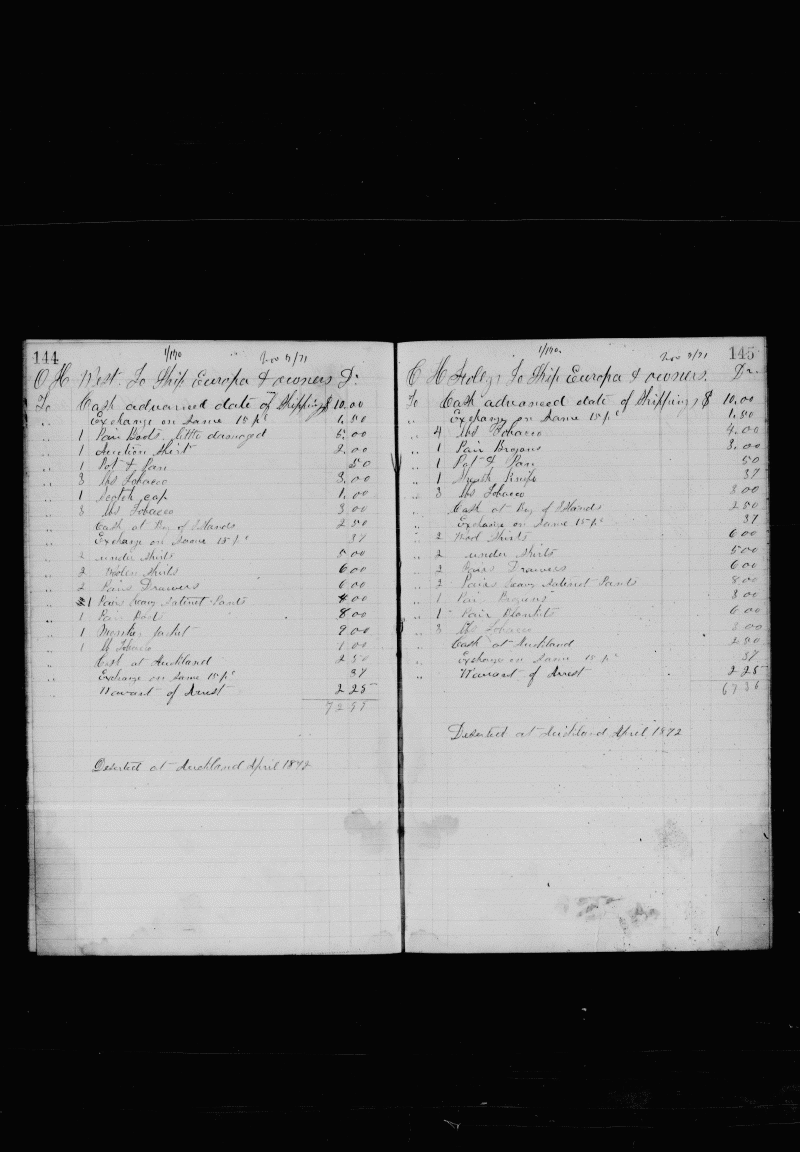 144
1/170 Nov 9/71
O H West. To Ship Europa & owners Dr.
To Cash advanced date of Shipping $ 10.00
" Exchange on Same 15 pc 1.50
" 1 Pair Boots little damaged 5.00
" 1 Auction Shirt 2.00
" 1 Pot & Pan 50
" 3 lbs Tobacco 3.00
" 1 Scotch cap 1.00
" 3 lbs Tobacco 3 00
" Cash at Bay of Islands 2 50
" Exchange on Same 15 pc 37
" 2 under Shirts 5 00
" 2 Wolen Shirts 6 00
" 2 Pairs Drawers 6 00
" 1 Pairs heavy Satinet Pants 4 00
" 1 Pair Boots 8 00
" 1 Monkey Jacket 9 00
" 1 lb Tobacco 1 00
" Cash at Auckland 2 50
" Exchange on Same 15 pc 37
" Warrant of Arrest 2 25
Deserted at Auckland April 1872
145
1/170 Nov 9/71
C H To Ship Europa & owners. Dr.
To Cash advanced date of Shipping $ 10.00
" Exchange on Same 15 pc 1.50
" 4 lbs Tobacco 4.00
" 1 Pair Brogans 3.00
" 1 Pot & Pan 50
" 1 Sheath Knife 37
" 3 lbs Tobacco 3 00
" Cash at Bay of Islands 2 50
" Exchange on Same 15 pc 37
" 2 Wool Shirts 6 00
" 2 under Shirts 5 00
" 2 Pairs Drawers 6 00
" 2 Pairs heavy Satinet Pants 8 00
" 1 Pair Brogans 3 00
" 1 Pair Blankets 6 00
" 3 lbs Tobacco 3 00
" Cash at Auckland 2 50
" Exchange on Same 15 pc 37
" Warrant of Arrest 2 25
67 36
Deserted at Auckland April 1872